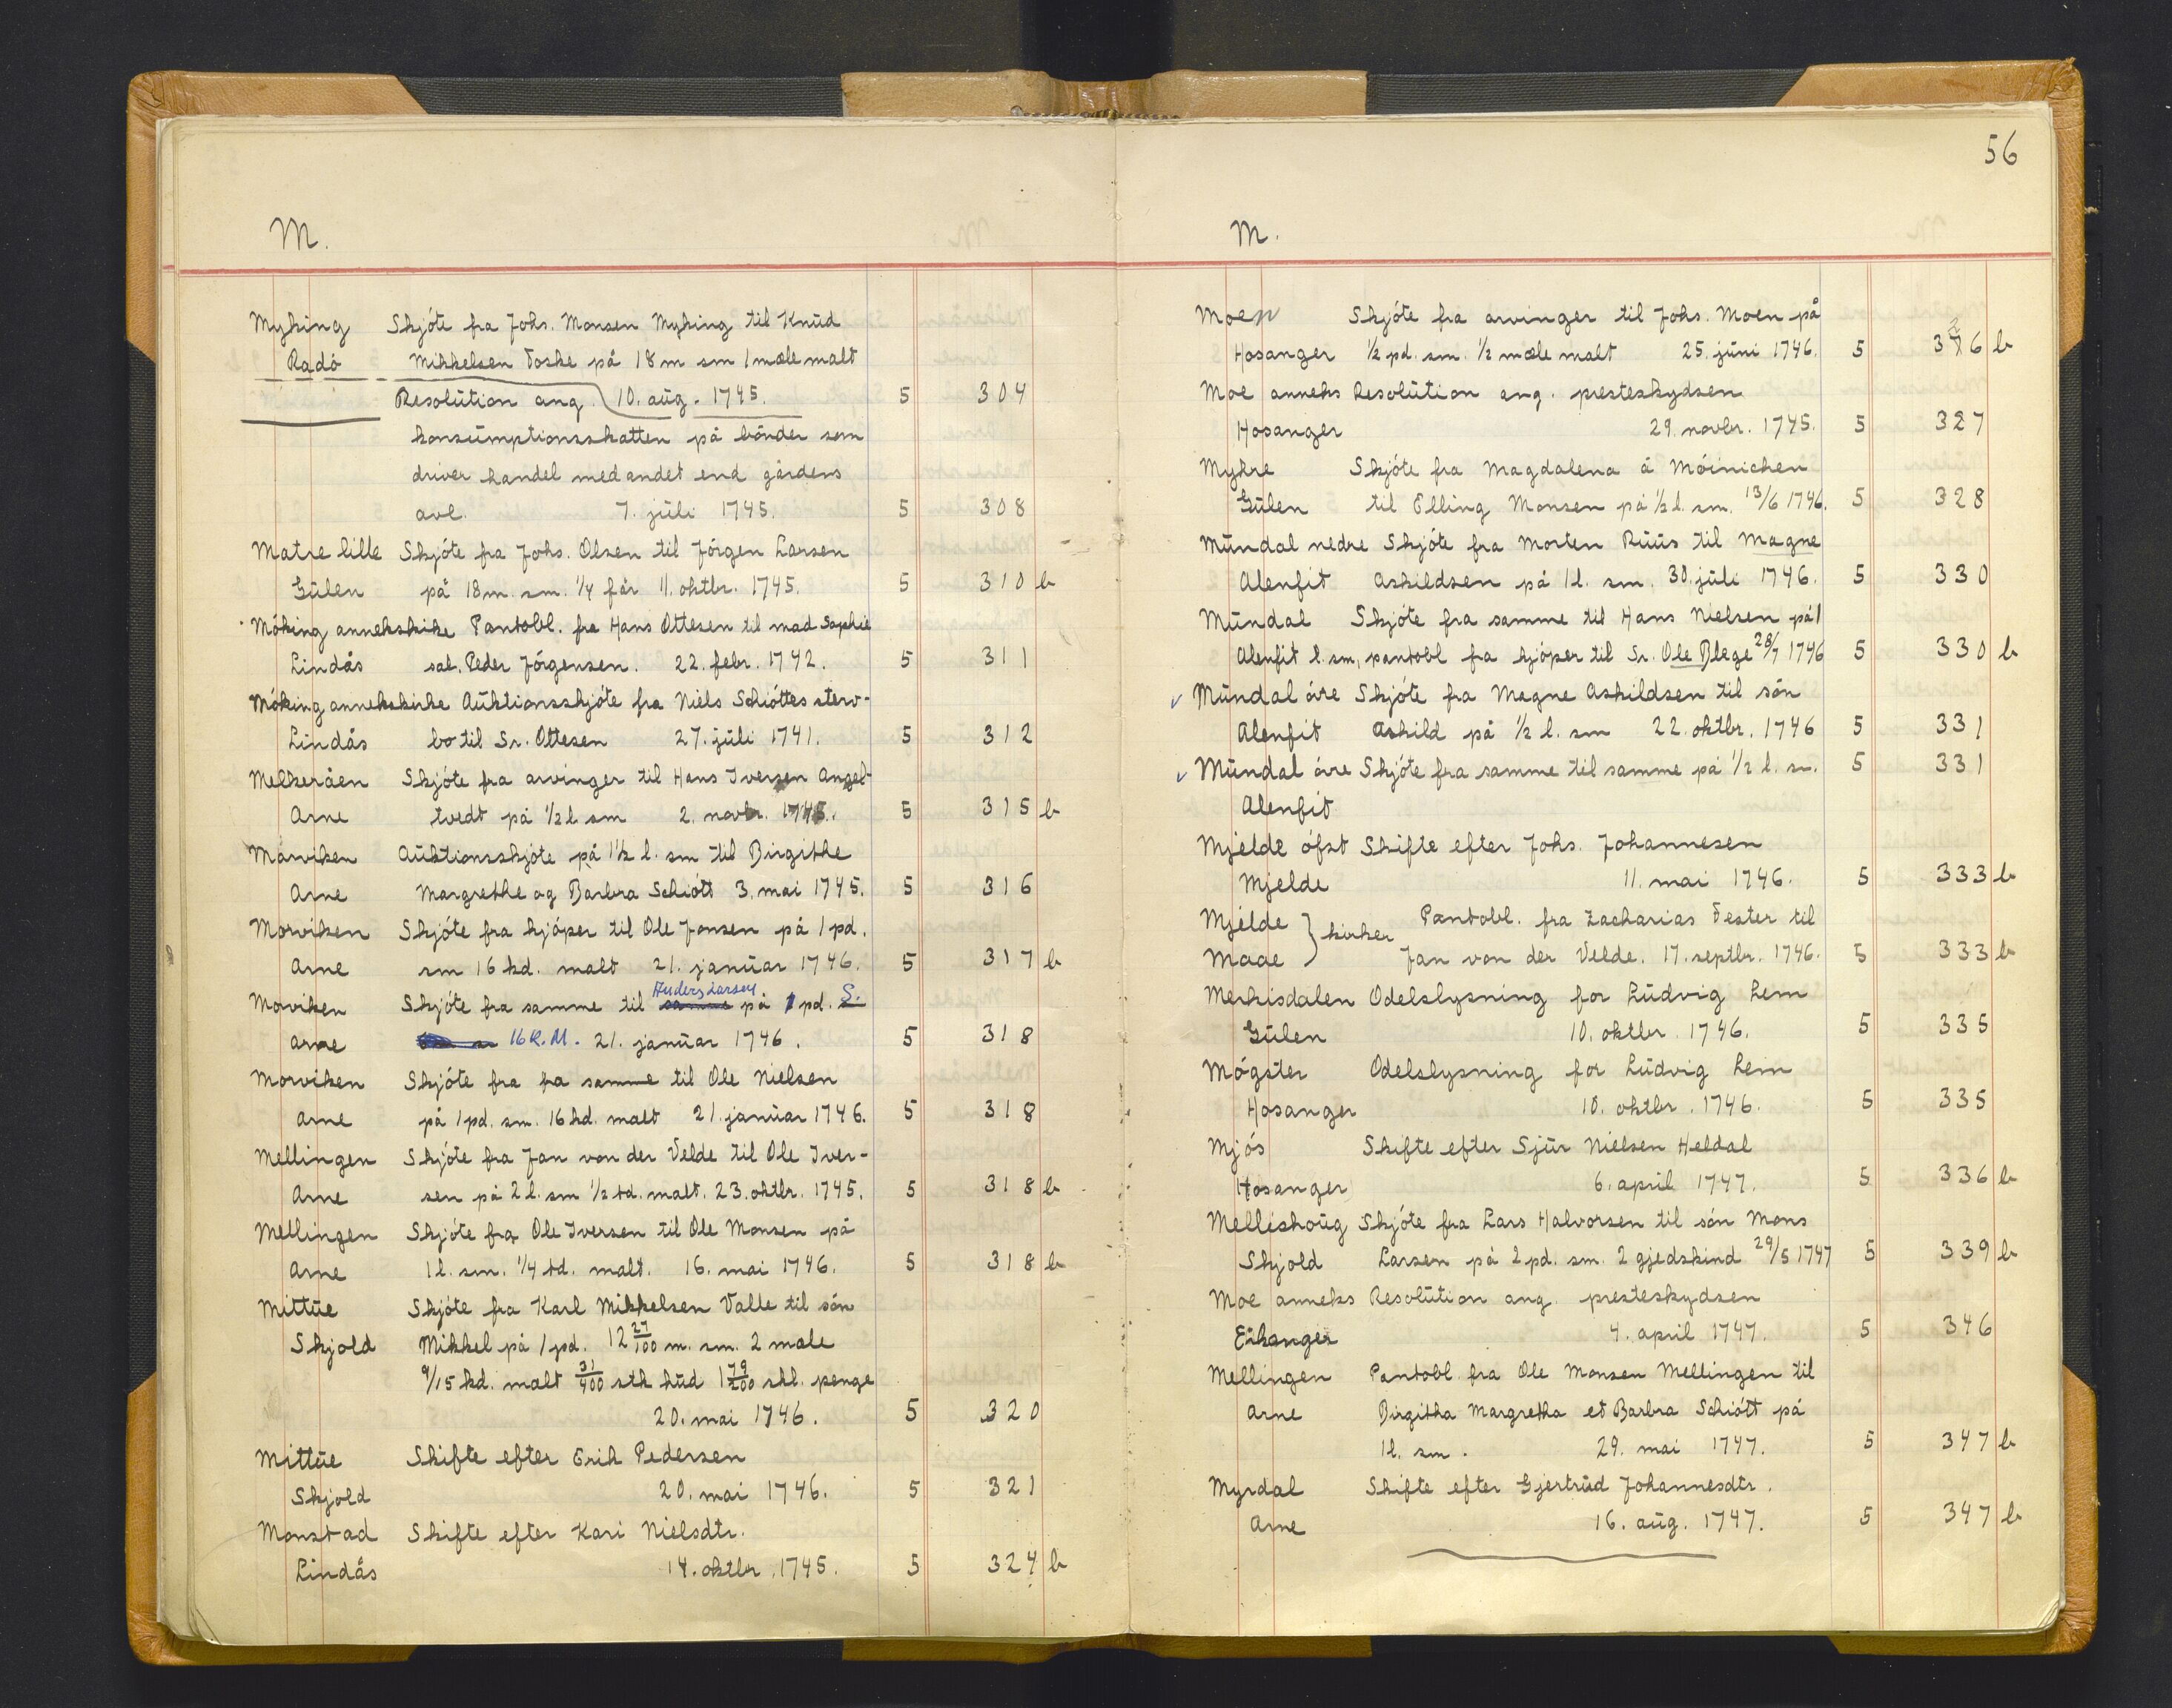 M.
Myking Skjóte fra Johs. Monsen Myking til Knŭd
Radó Mikkelsen Toske på 18 m sm 1 mæle malt
Resolŭtion ang. 10. aŭg. 1745. 5 304
konsŭmptionsskatten på bónder som
driver handel med andet end gårdens
avl. 7. jŭli 1745. 5 308
Matre lille Skjóte fra Johs. Olsen til Jórgen Larsen
Gŭlen på 18 m. sm. 1/4 får 11. oktbr. 1745. 5 310 b
Móking annekskike Pantobl. fra Hans Ottesen til mad Sophie
Lindås sal. Peder Jórgensen. 22. febr. 1742. 5 311
Móking annekskirke Aŭktionsskjóte fra Niels Schióttes sterv-
Lindås bo til Sr. Ottesen 27. jŭli 1741. 5 312
Melkeråen Skjóte fra arvinger til Hans Iversen Angel-
Arne tvedt på 1/2 l sm 2. novbr. 1745. 5 315 b
Morviken Aŭktionsskjóte på 1 1/2 l. sm til Birgithe
Arne Margrethe og Barbra Schiótt 3. mai 1745. 5 316
Morviken Skjóte fra kjóper til Ole Jonsen på 1 pd.
Arne sm 16 kd. malt 21. janŭar 1746. 5 317 b
Anders Larsen
Morviken Skjóte fra samme til samme på 1 pd. S.
Arne 16 K. M. 21. janŭar 1746. 5 318
Morviken Skjóte fra fra samme til Ole Nielsen
Arne på 1 pd. sm. 16 kd. malt 21. janŭar 1746. 5 318
Mellingen Skjóte fra Jan von der Velde til Ole Iver-
Arne sen på 2 l. sm 1/2 td. malt. 23. oktbr. 1745. 5 318 b
Mellingen Skjóte fra Ole Iversen til Ole Monsen på
Arne 1 l. sm. 1/4 td. malt. 16. mai 1746. 5 318 b
Mittŭe Skjóte fra Karl Mikkelsen Valle til són
Skjold Mikkel på 1 pd. 12 27/100 m. sm. 2 male
9/15 kd. malt 31/400 stk hŭd 1 79/200 skl. penge
20. mai 1746. 5 320
Mittŭe Skifte efter Erik Pedersen
Skjold 20. mai 1746. 5 321
Monstad Skifte efter Kari Nielsdtr.
Lindås 14. oktbr. 1745. 5 324 b
56
M.
Moen Skjóte fra arvinger til Johs. Moen på
Hosanger 1/2 pd. sm. 1/2 mæle malt 25. jŭni 1746. 5 326 b
Moe anneks Resolŭtion ang. presteskydsen
Hosanger 29. novbr. 1745. 5 327
Mykre Skjóte fra Magdalena á Móinichen
Gŭlen til Elling Monsen på 1/2 l. sm. 13/6 1746. 5 328
Mŭndal nedre Skjóte fra Morten Rŭŭs til Magne
Alenfit Askildsen på 1 l. sm. 30. jŭli 1746. 5 330
Mŭndal Skjóte fra samme til Hans Nielsen på 1
Alenfit l. sm, pantobl fra kjóper til Sr. Ole Blege 28/7 1746 5 330 b
Mŭndal óvre Skjóte fra Magne Askildsen til són
Alenfit Askild på 1/2 l. sm 22. oktbr. 1746 5 331
Mŭndal óvre Skjóte fra samme til samme på 1/2 l. sm. 5 331
Alenfit
Mjelde ófst Skifte efter Johs. Johannesen
Mjelde 11. mai 1746. 5 333 b
Mjelde } kirker Pantobl. fra Zacharias Tester til
Made Jan von der Velde. 17. septbr. 1746. 5 333 b
Merkisdalen Odelslysning for Lŭdvig Lem
Gŭlen 10. oktbr. 1746. 5 335
Mógster Odelslysning for Lŭdvig Lem
Hosanger 10. oktbr. 1746. 5 335
Mjós Skifte efter Sjŭr Nielsen Heldal
Hosanger 6. april 1747. 5 336 b
Melleshoŭg Skjóte fra Lars Halvorsen til són Mons
Skjold Larsen på 2 pd. sm. 2 gjedskind 29/5 1747 5 339 b
Moe anneks Resolŭtion ang. presteskydsen
Eikanger 4. april 1747. 5 346
Mellingen Pantobl. fra Ole Monsen Mellingen til
Arne Birgitha Margretha et Barbra Schiótt på
1 l. sm. 29. mai 1747. 5 347 b
Myrdal Skifte efter Gjertrŭd Johannesdtr.
Arne 16. aŭg. 1747. 5 347 b